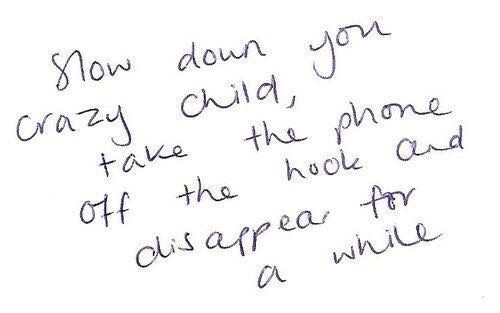 Slow down you
crazy child,
take the phone
off the hook and
disappear for
a while